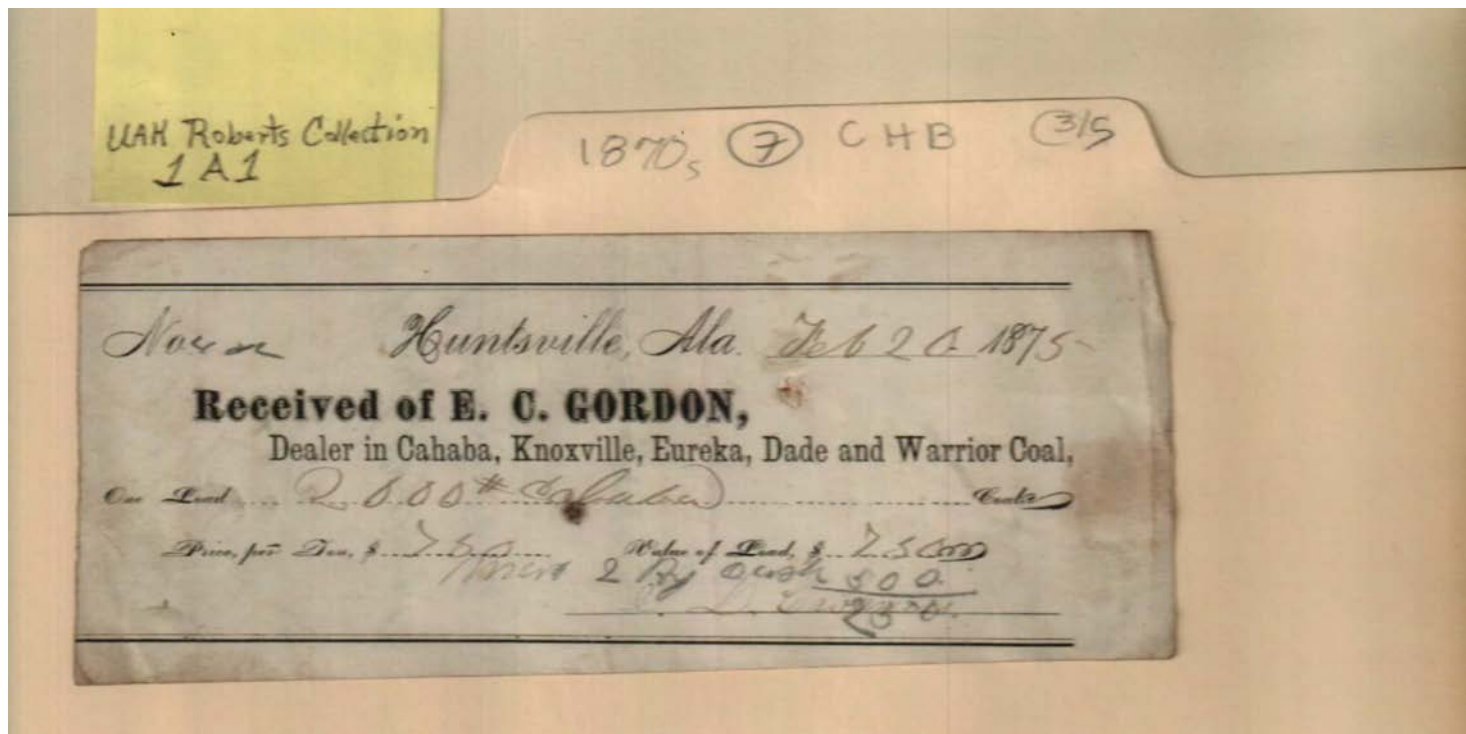 UAH Roberts Collection
1A1
1870s 7 CHB 3/5
Huntsville, Ala. Feb 20 1875
Received of E. C. GORDON,
Dealer in Cahaba, Knoxville, Eureka, Dade and Warrior Coal,
One Load 2000# Cahaba Coal
Price, per Ton, $ 7 50 Value of Load, $ 7 50
2 By Cash 500
250